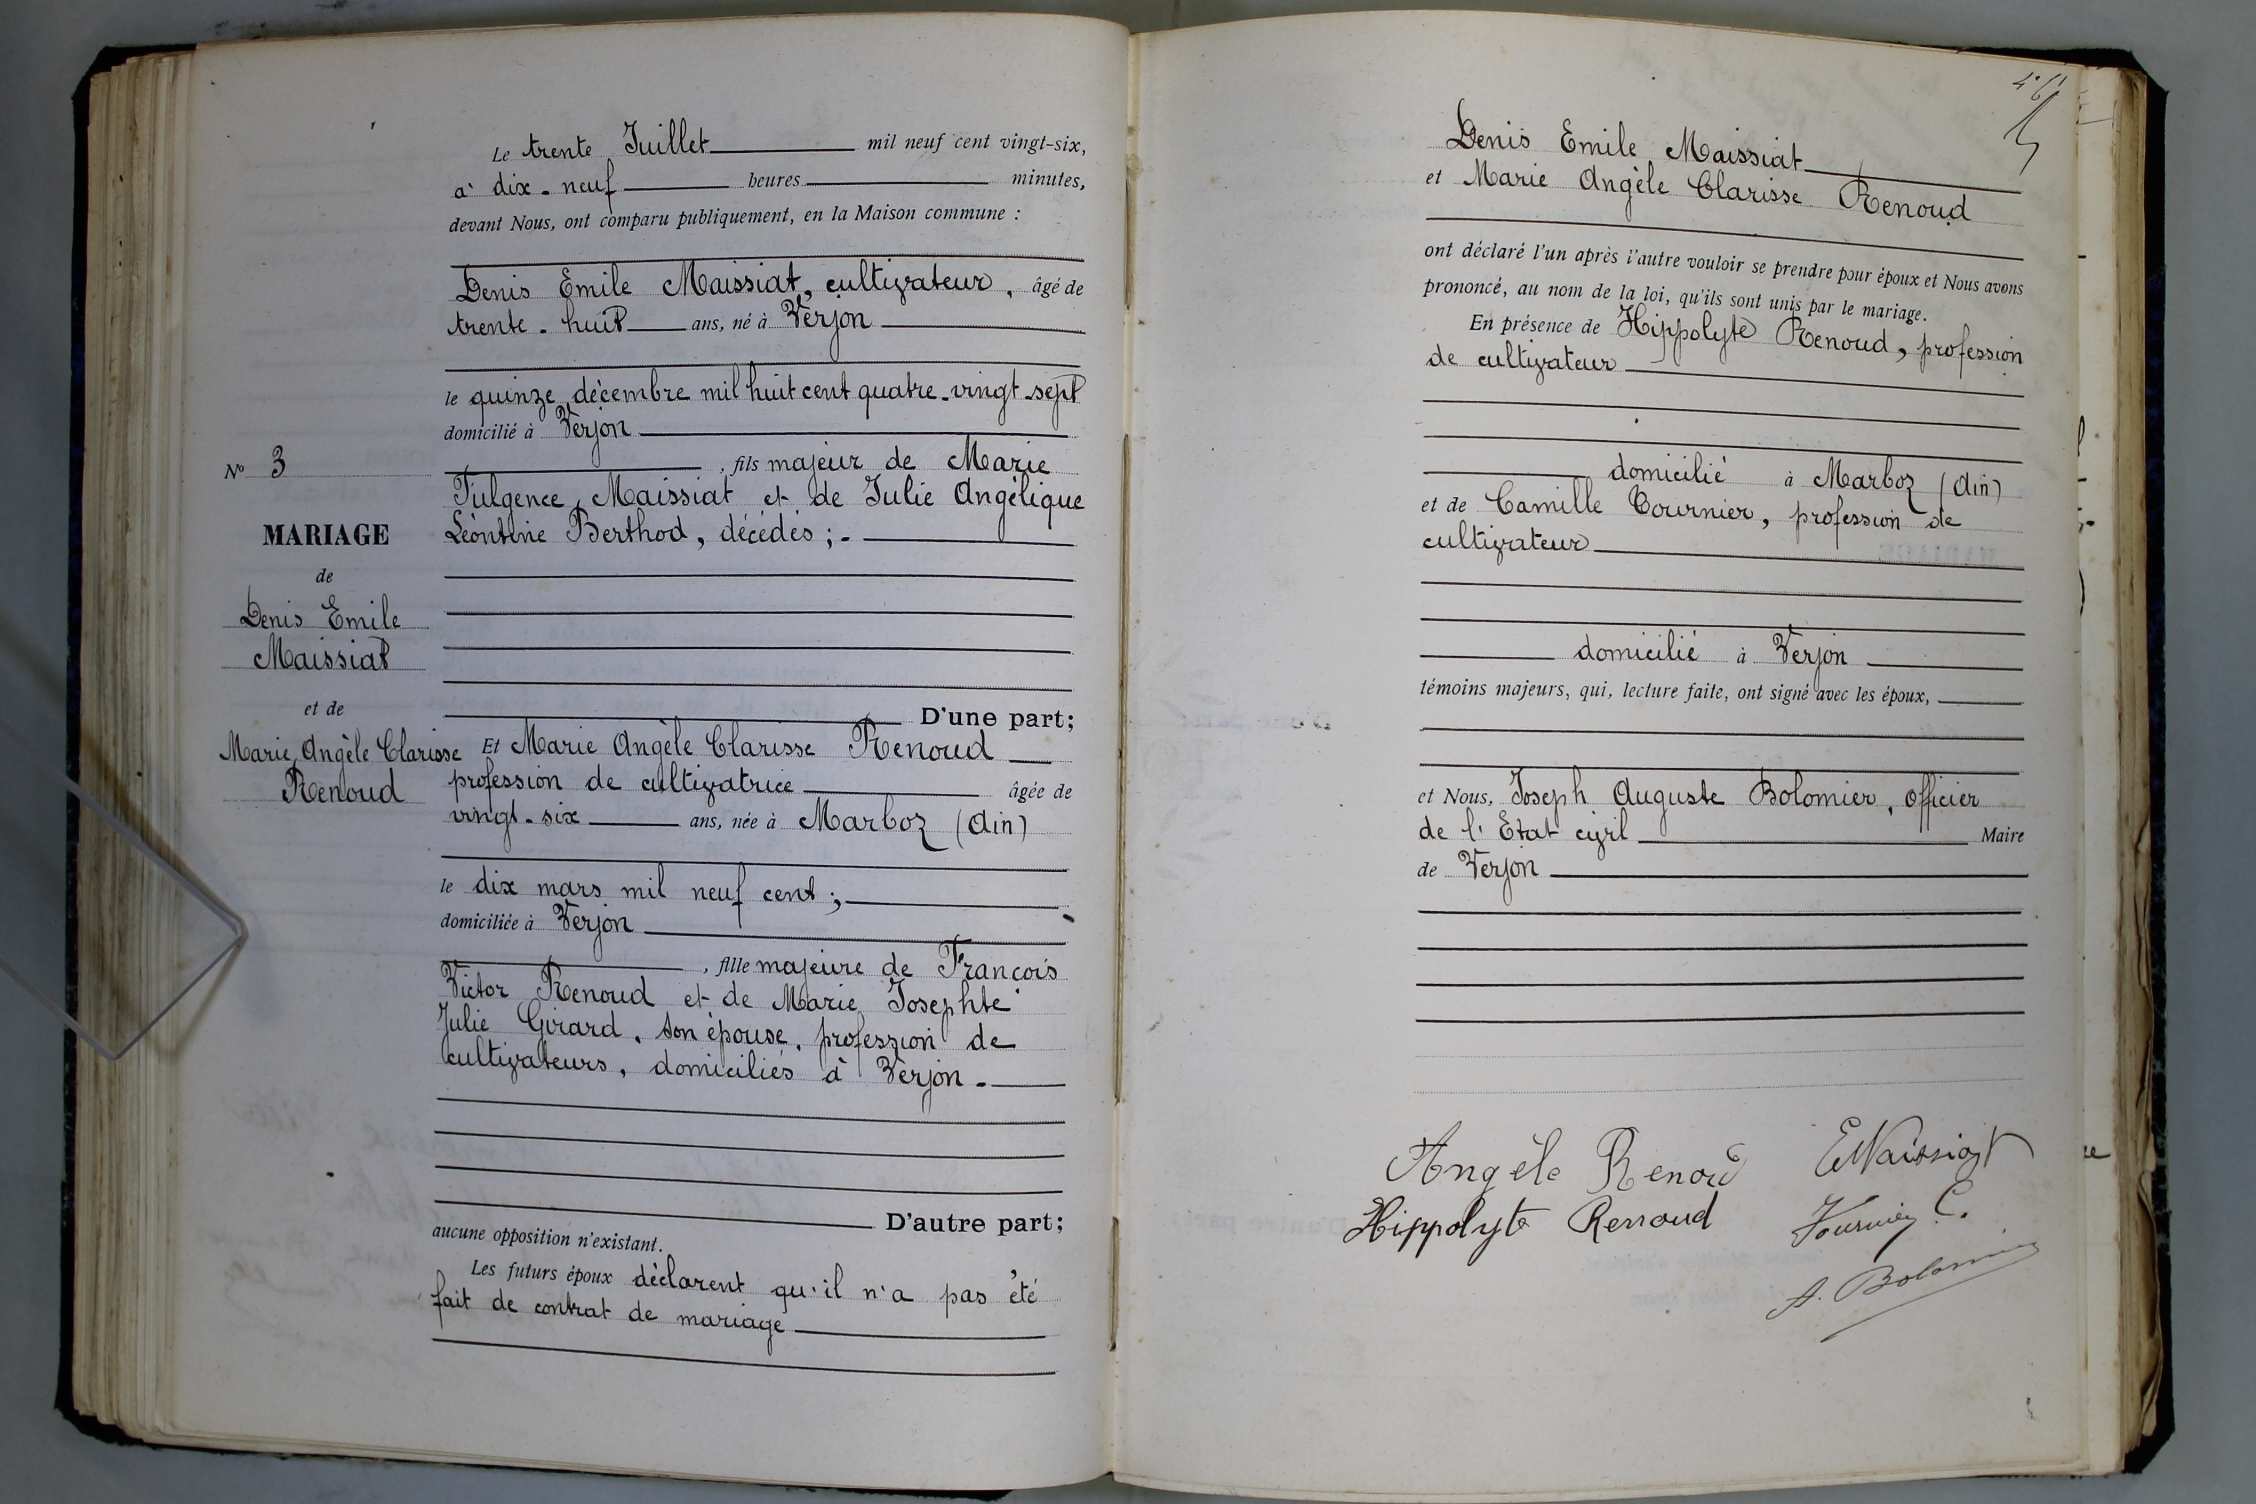 Le trente Juillet mil neuf cent vingt-six,
à dix-neuf heures minutes,
devant Nous, ont comparu publiquement, en la Maison commune :
Denis Emile Maissiat, cultivateur, âgé de
trente-huit ans, né à Verjon
le quinze décembre mil huit cent quatre-vingt-sept
domicilié à Verjon
, fils majeur de Marie
Fulgence Maissiat et de Julie Angélique
Léontine Berthod, décédés ;-
D'une part;
Nº 3
MARIAGE
de
Denis Emile
Maissiat
et de
Marie Angèle Clarisse
Renoud
Et Marie Angèle Clarisse Renoud
profession de cultivatrice âgée de
vingt-six ans, née à Marboz (Ain)
le dix mars mil neuf cent ;
domiciliée à Verjon
, fille majeure de François
Victor Renoud et de Marie Josephte
Julie Girard, son épouse, profession de
cultivateurs, domiciliés à Verjon.
D'autre part;
aucune opposition n'existant.
Les futurs époux déclarent qu'il n'a pas été
fait de contrat de mariage
Denis Emile Maissiat
et Marie Angèle Clarisse Renoud
ont déclaré l'un après l'autre vouloir se prendre pour époux et Nous avons
prononcé, au nom de la loi, qu'ils sont unis par le mariage.
En présence de Hippolyte Renoud, profession
de cultivateur
domicilié à Marboz (Ain)
et de Camille Tournier, profession de
cultivateur
domicilié à Verjon
témoins majeurs, qui, lecture faite, ont signé avec les époux,
et Nous, Joseph Auguste Bolomier, officier
de l'Etat civil Maire
de Verjon
Angèle Renoud EMaissiat
Hippolyte Renoud Tournier C.
A. Bolomier